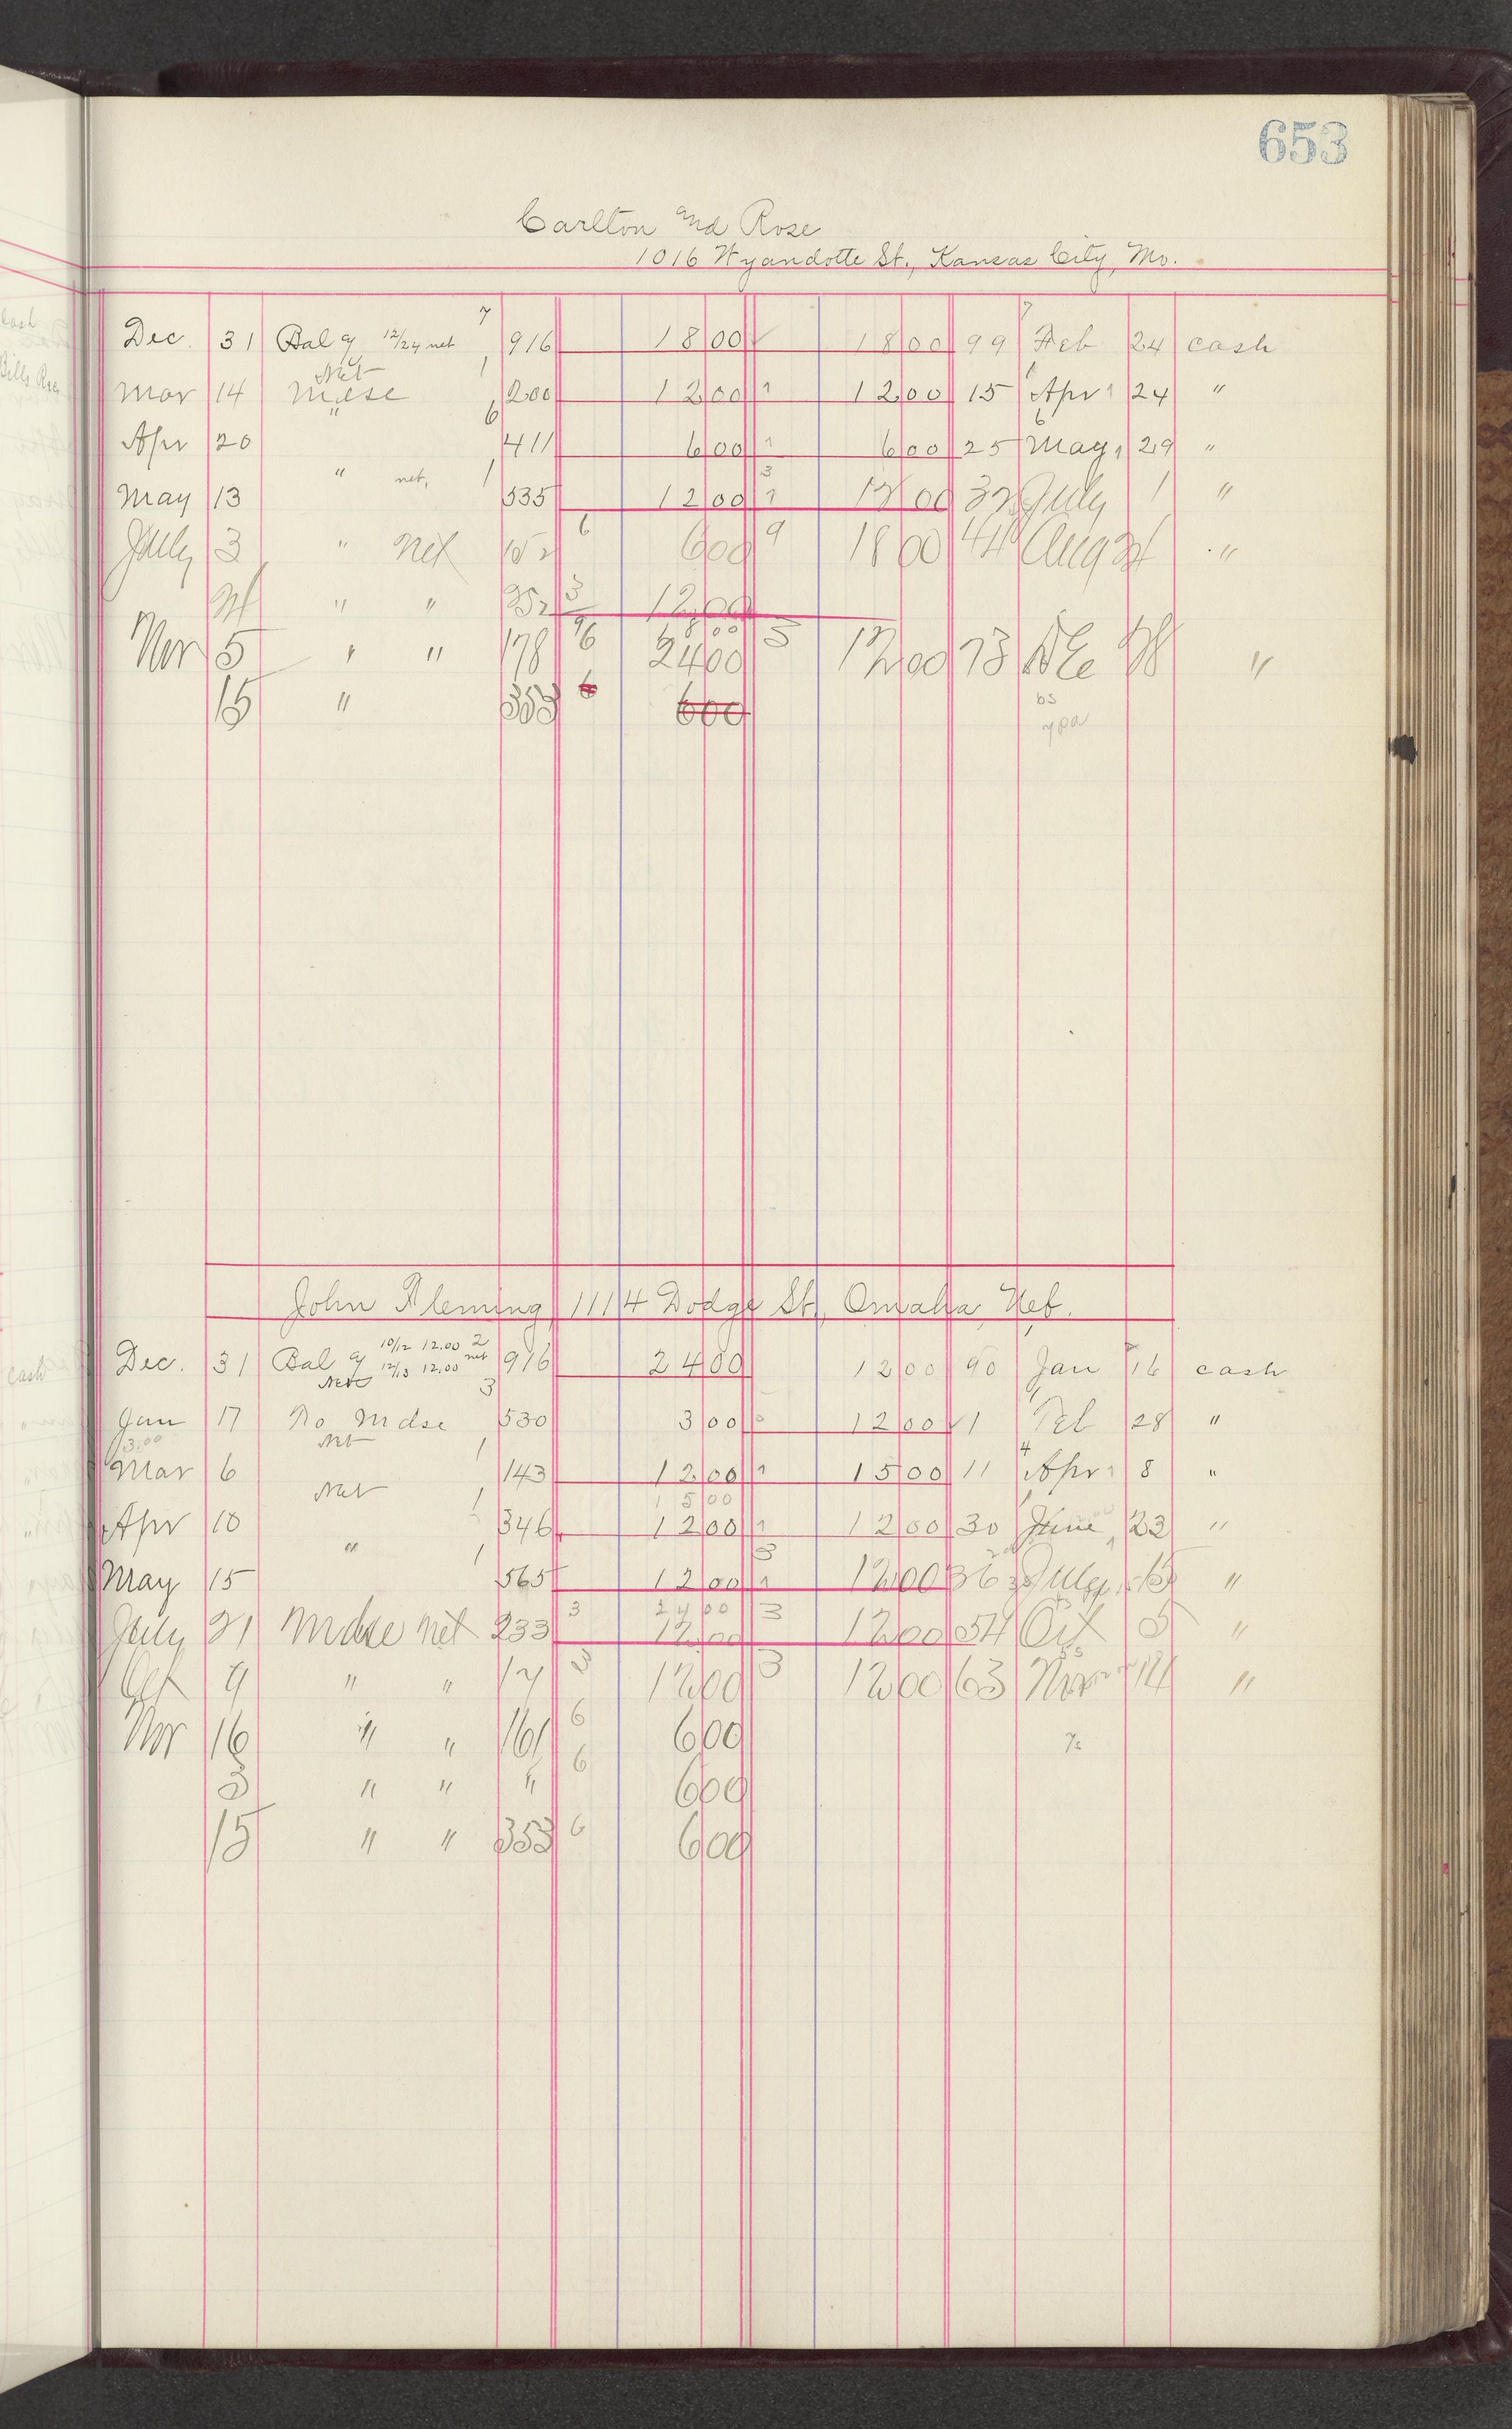 653
Carlton and Rose
1016 Wyandotte St., Kansas City, Mo.
Dec. 31 Bal 12/24 net 7 916 18 00 18 00 99 7 Feb 24 cash
Net
Mar 14 Mdse 1 200 12 00 1 12 00 15 1 Apr 24 "
Apr 20 " 6 411 6 00 1 6 00 25 6 May 29 "
May 13 " net, 1 535 12 00 3 1 12 00 32 July 1 "
July 3 " Net 6 6 00 9 18 00 44 Aug "
" " 352 3 12 00
18 00
Nov 5 " " 178 6 24 00 3 12 00 73 Dec "
15 " 353 6 6 00
John Fleming, 1114 Dodge St., Omaha, Neb.
10/12 12.00 2
Dec. 31 Bal 12/13 12.00 net 916 24 00 12 00 90 Jan 16 cash
Net 3
Jan 17 To Mdse 530 3 00 12 00 1 Feb 28 "
3.00 Net
Mar 6 1 143 12 00 1 15 00 11 4 Apr 8 "
Net 15 00
Apr 10 1 346 12 00 1 12 00 30 June 23 "
May 15 " 1 565 12 00 3 1 12 00 36 July 15 "
24 00
July 21 Mdse net 233 3 12 00 3 12 00 54 Oct 5 "
Oct 9 " " 17 3 12 00 3 12 00 63 Nov 14 "
Nov 16 " " 161 6 6 00
3 " " " 6 6 00
15 " " 353 6 6 00